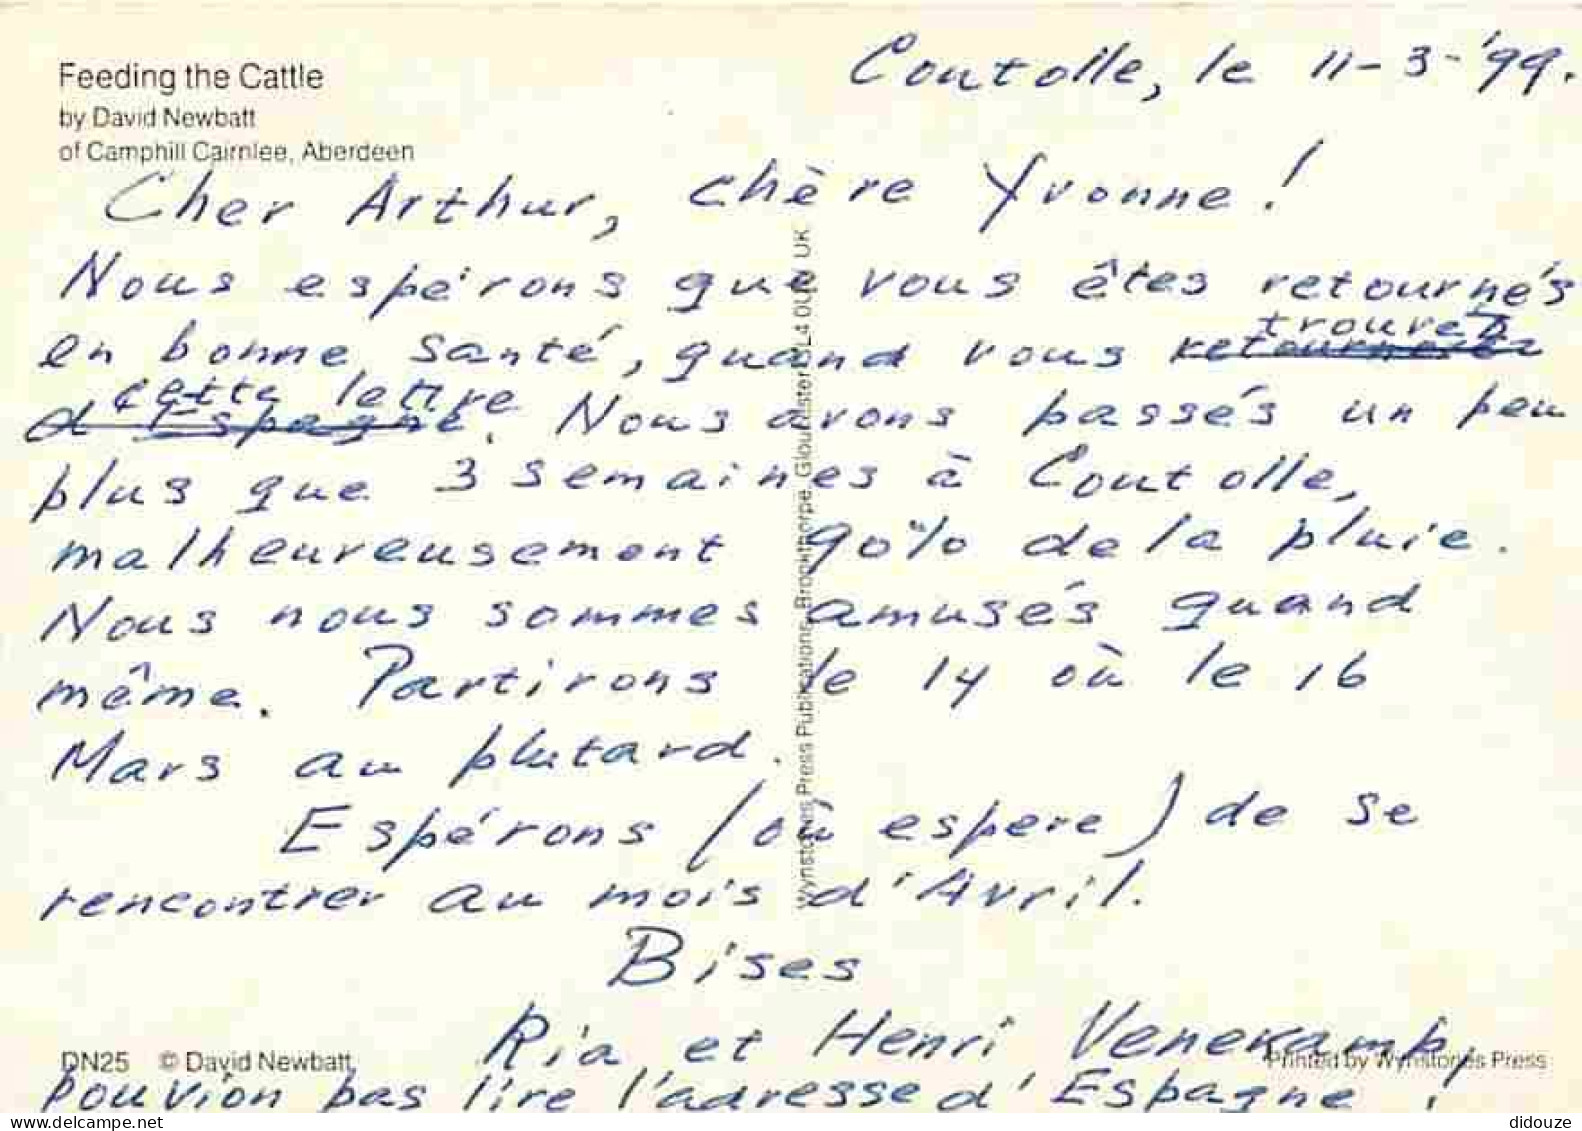 Coutolle, le 11-3-'99.
Feeding the Cattle
by David Newbatt
of Camphill Cairnlee, Aberdeen
Cher Arthur, chère Yvonne!
Nous espérons que vous êtes retournés
en bonne santé, quand vous trouvez
cette lettre. Nous avons passés un peu
plus que 3 semaines à Coutolle,
malheureusement 90% de la pluie.
Nous nous sommes amusés quand
même. Partirons le 14 où le 16
Mars au plutard.
Espérons (où espere) de se
rencontrer au mois d'Avril.
Bises
Ria et Henri Venekamp,
pouvion pas lire l'adresse d'Espagne!
DN25 © David Newbatt
Printed by Wynstones Press
Wynstones Press Publications, Brookthorpe, Gloucester GL4 0UN UK
didouze